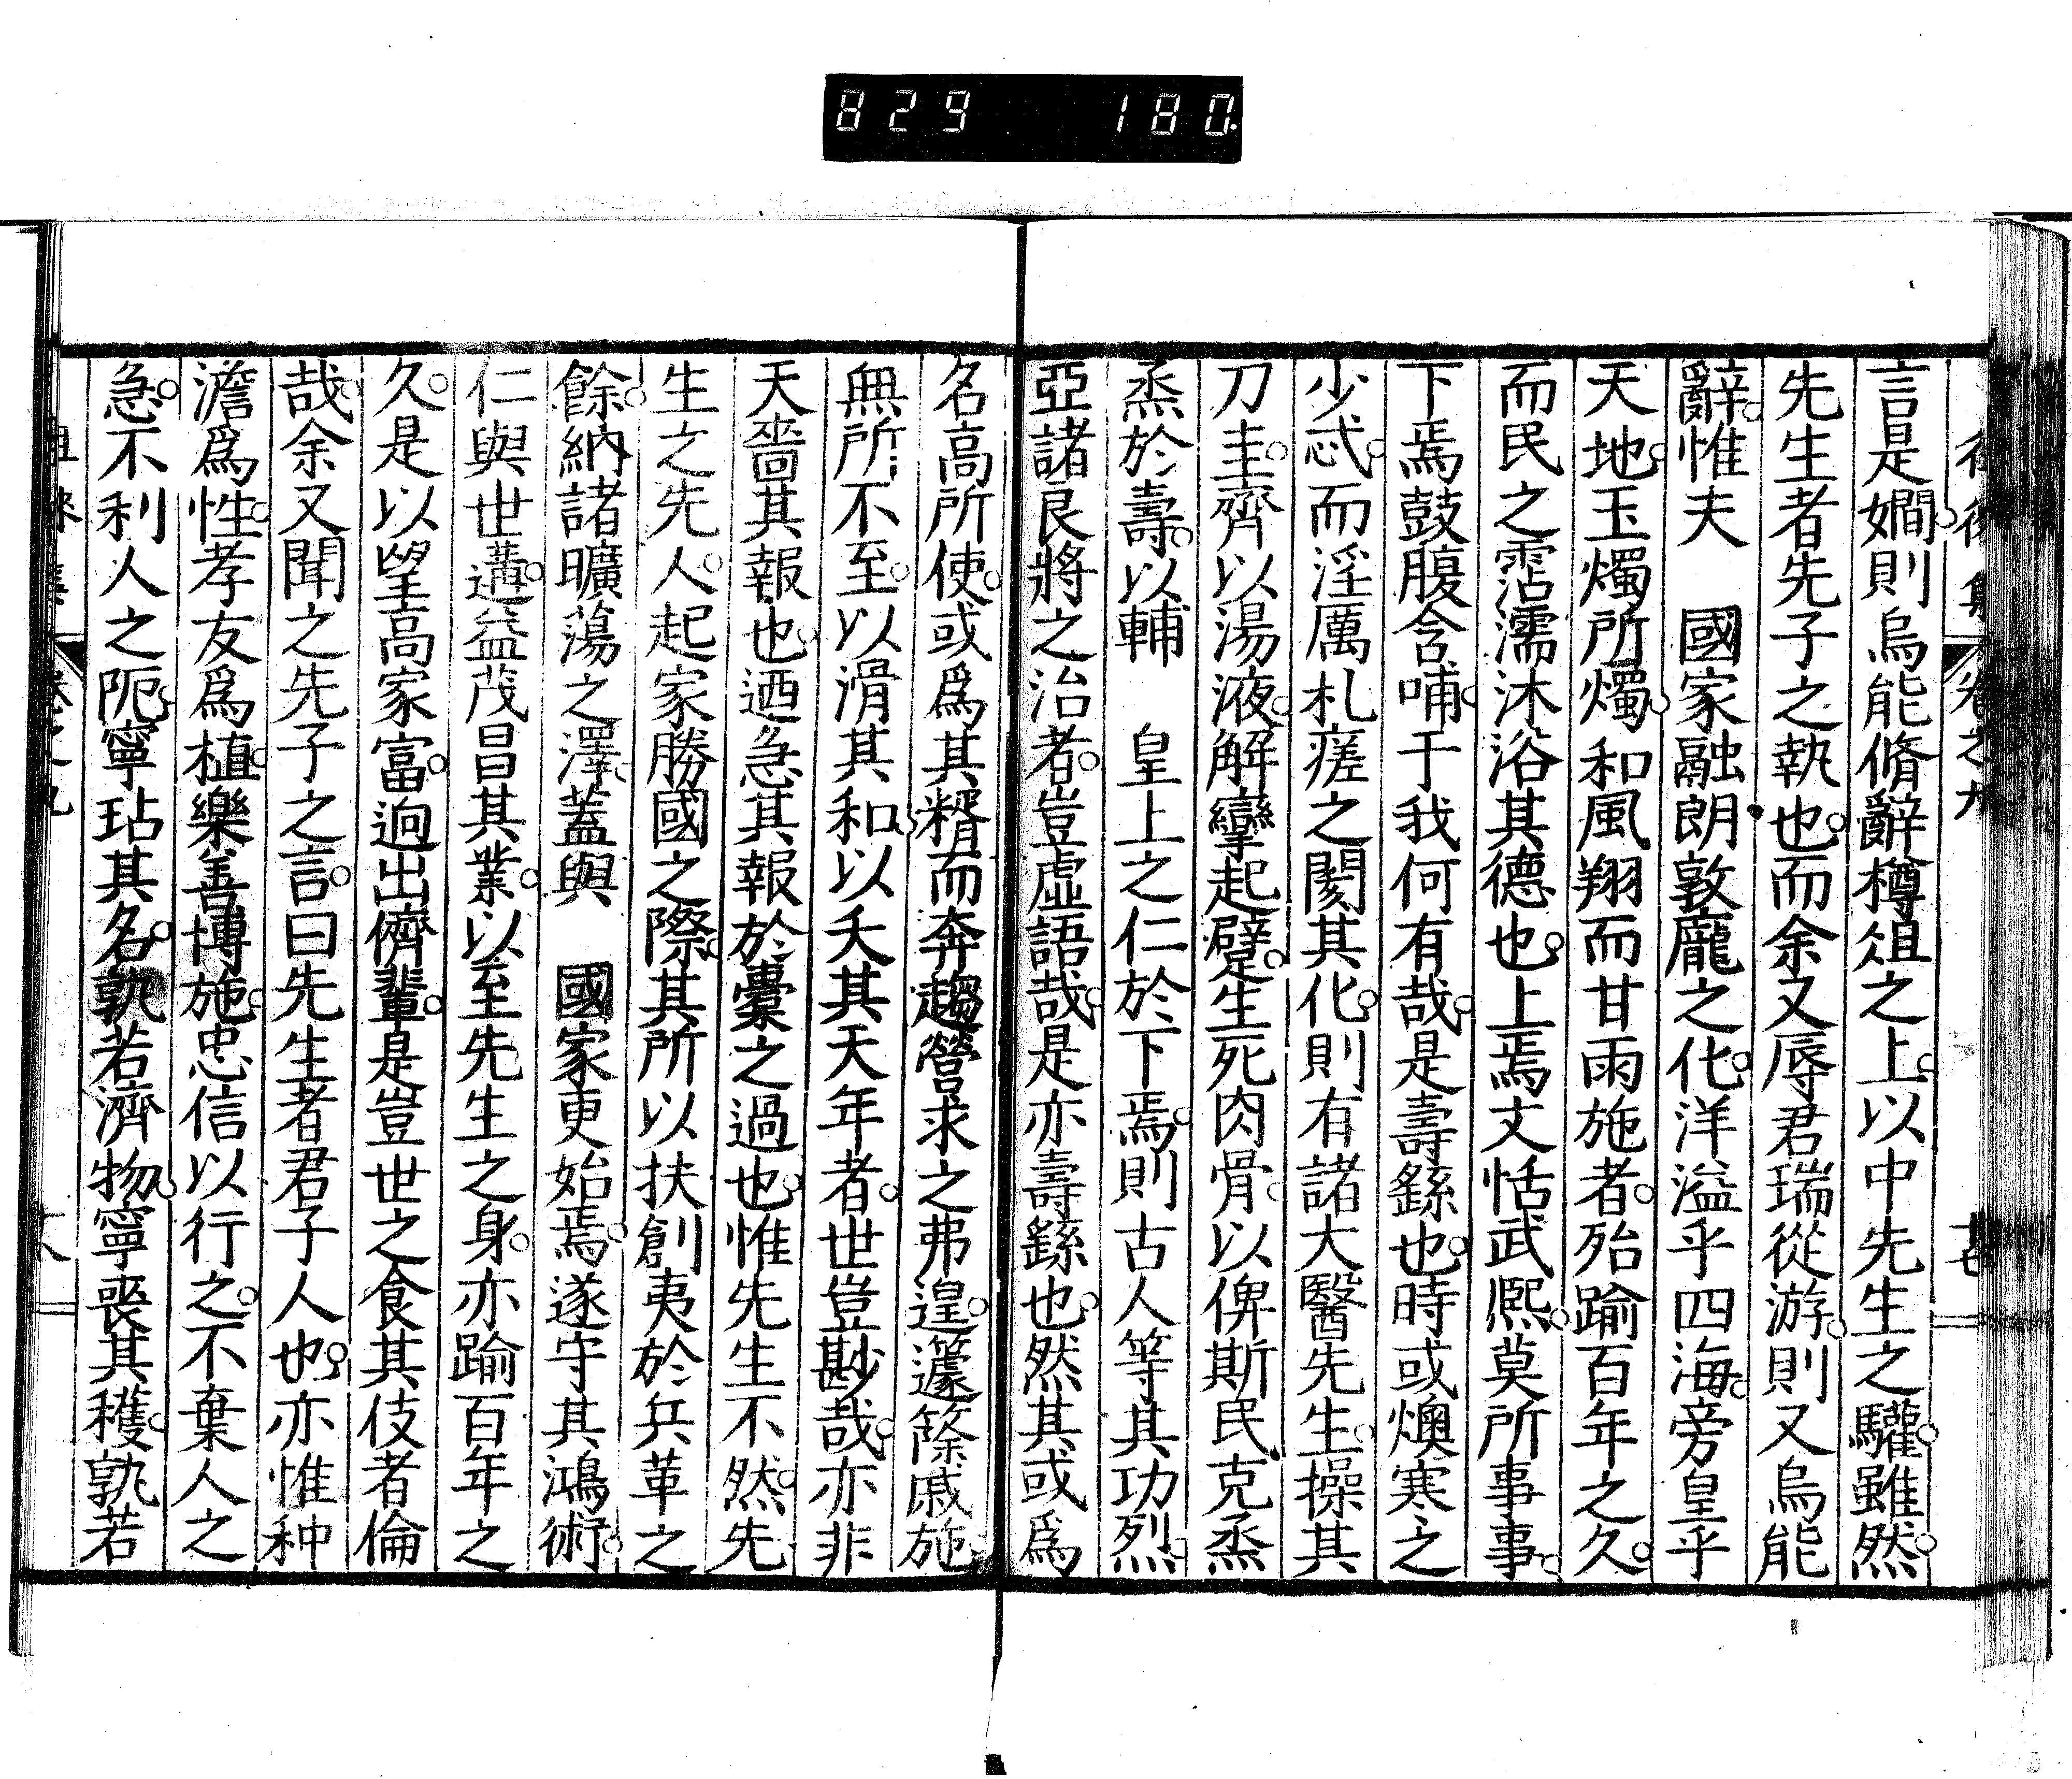 829 180
言是嫺則烏能脩辭樽俎之上以中先生之驩雖然
先生者先子之執也而余又辱君瑞從游則又烏能
辭惟夫 國家融朗敦龐之化洋溢乎四海旁皇乎
天地玉燭所燭和風翔而甘雨施者殆踰百年之久
而民之霑濡沐浴其德也上焉文恬武熈莫所事事
下焉鼓腹含哺于我何有哉是壽繇也時或燠寒之
少忒而淫厲札瘥之閡其化則有諸大醫先生操其
刀圭齊以湯液解攣起躄生死肉骨以俾斯民克烝
烝於壽以輔 皇上之仁於下焉則古人等其功烈
亞諸良將之治者豈虛語哉是亦壽繇也然其或爲
名高所使或爲其糈而奔趨營求之弗遑籧篨戚施
無所不至以滑其和以夭其天年者世豈尠哉亦非
天嗇其報也迺急其報於橐之過也惟先生不然先
生之先人起家勝國之際其所以扶創夷於兵革之
餘納諸曠蕩之澤蓋與 國家更始焉遂守其鴻術
仁與世遘益茂昌其業以至先生之身亦踰百年之
久是以望高家富逈出儕輩是豈世之食其伎者倫
哉余又聞之先子之言曰先生者君子人也亦惟种
澹爲性孝友爲植樂善博施忠信以行之不棄人之
急不利人之阨寧玷其名孰若濟物寧喪其穫孰若